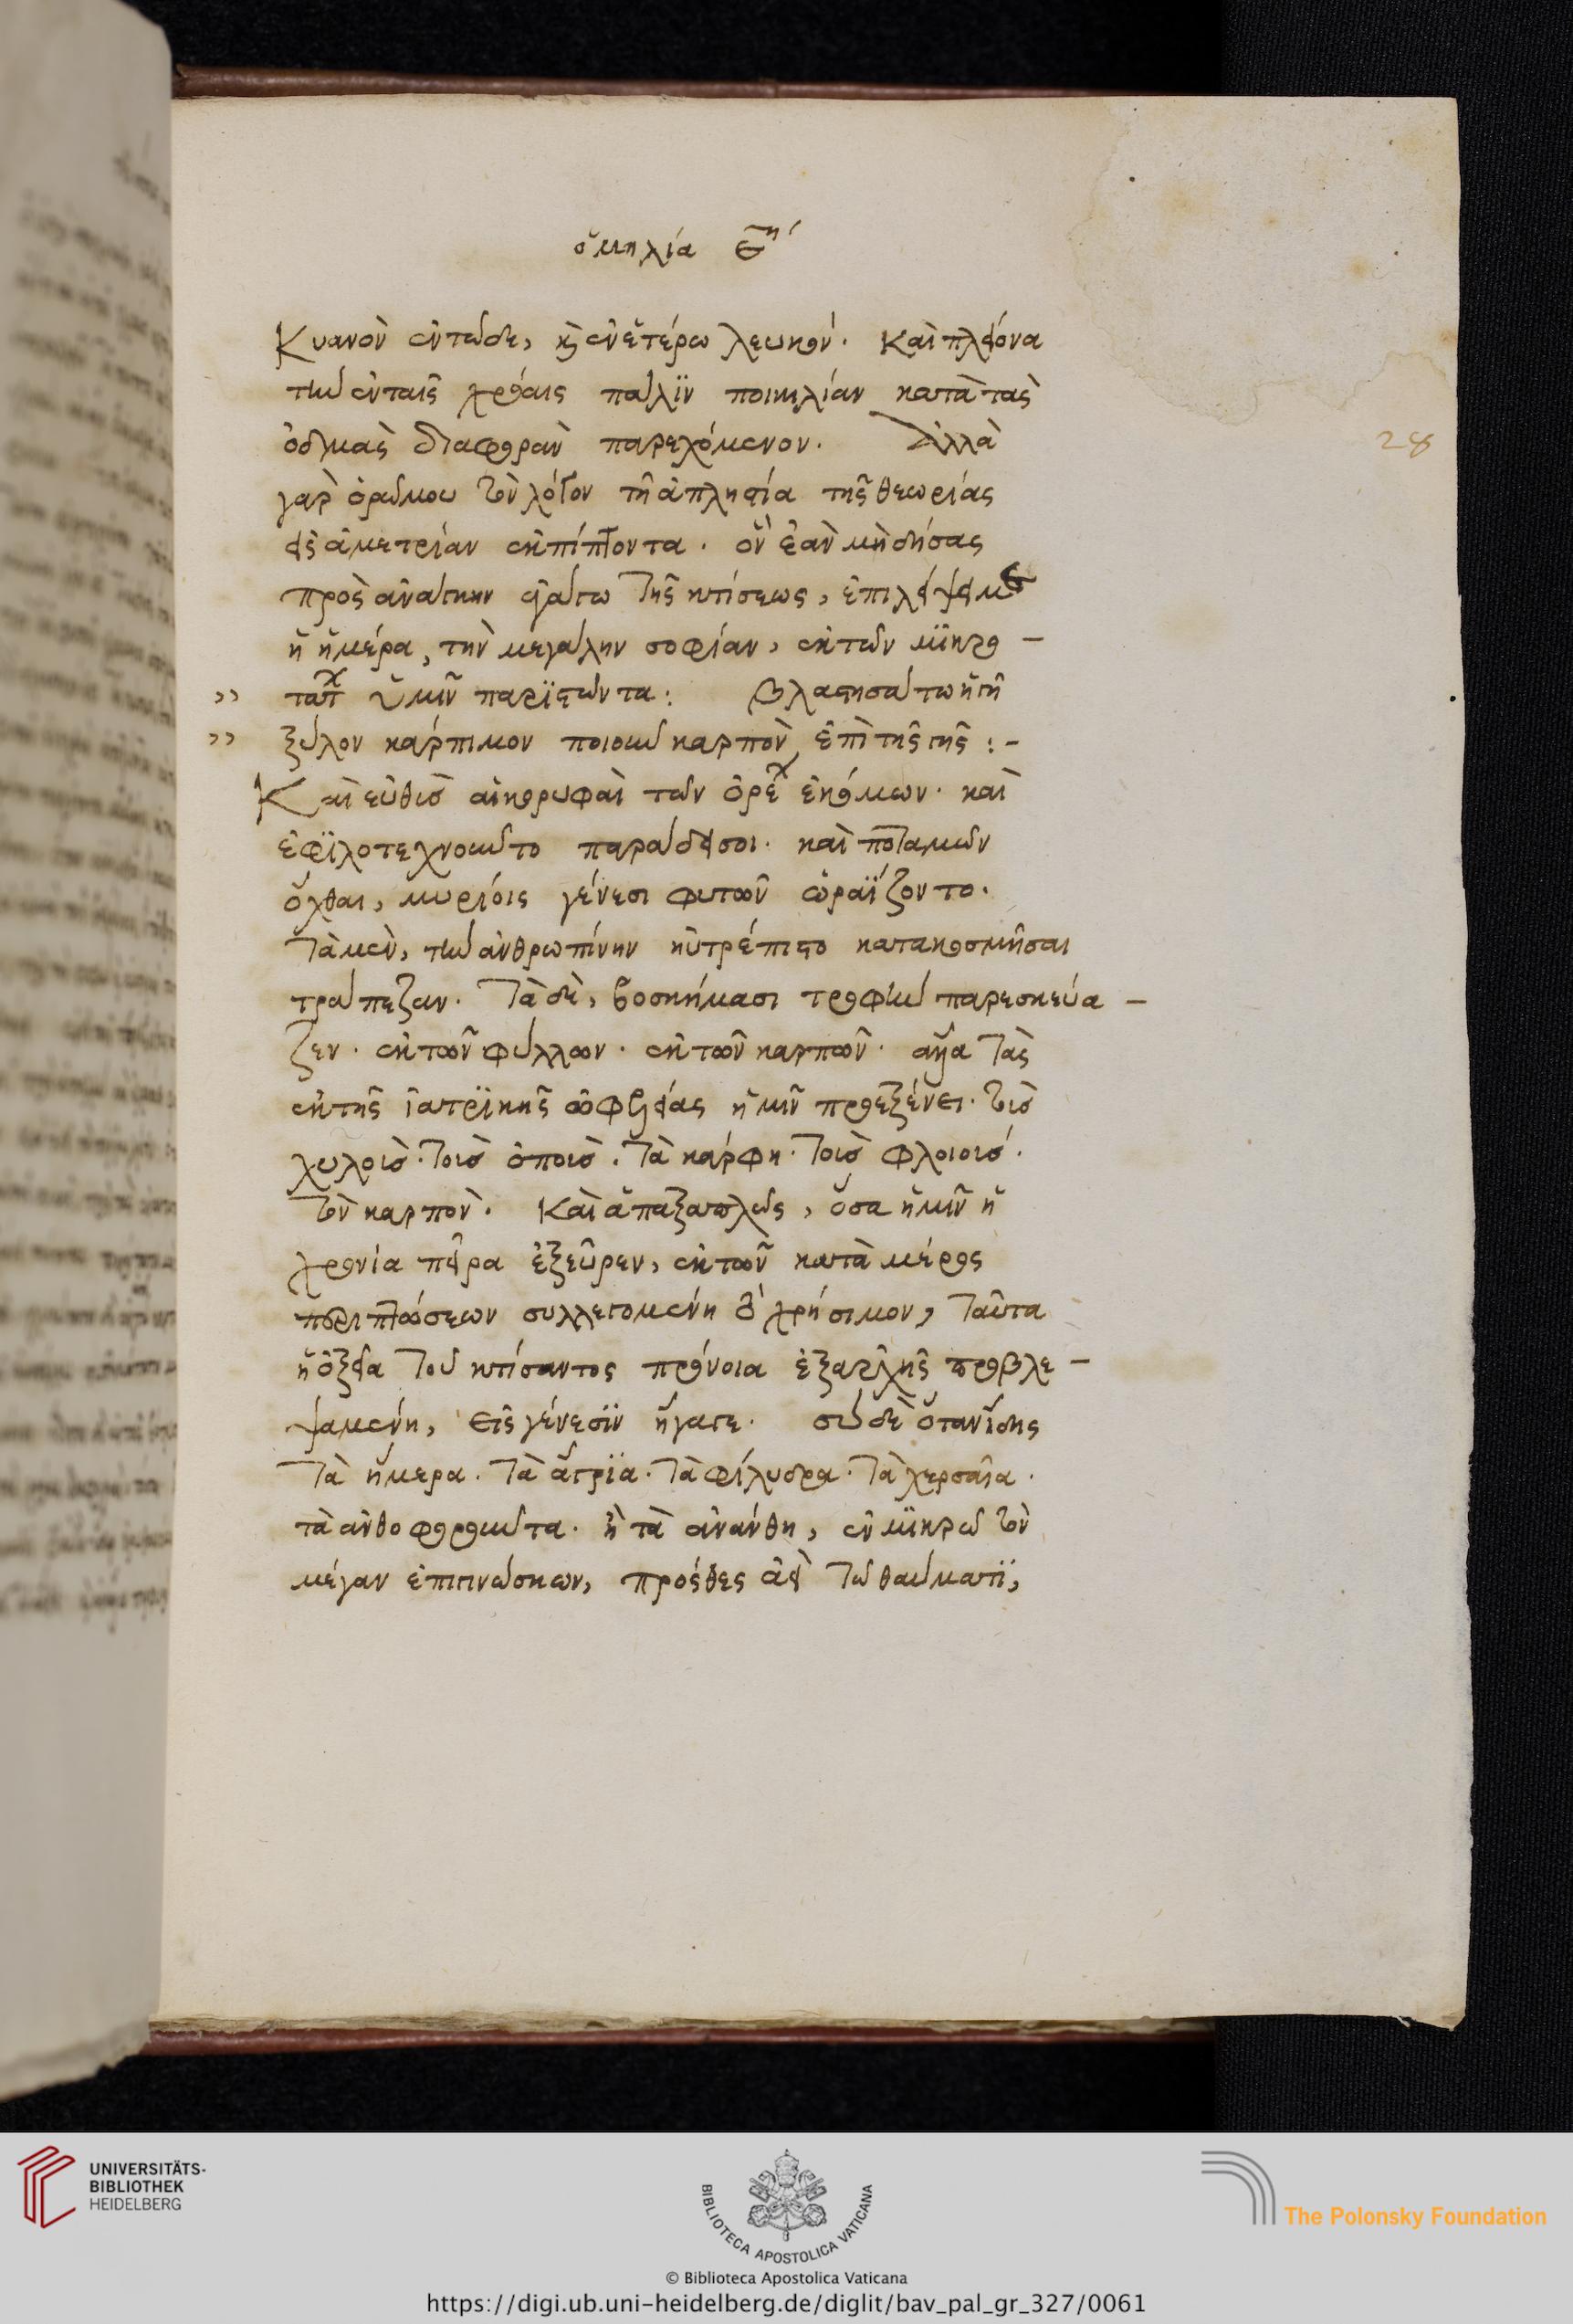 ὁμηλία εη
Κυανὸν ἐν τῶδε, καὶ ἐν ἑτέρω λευκόν. Καὶ πλείονα
τῆς ἐν ταῖς χρόαις πάλϊν ποικιλίαν κατὰ τὰς
ὀδμὰς διαφορὰν παρεχόμενον. Ἀλλὰ
γὰρ ὁρῶ μου τὸν λόγον τῆ ἀπληστία τῆς θεωρίας
εἰς ἀμετρίαν ἐκπίπτοντα. ὃν ἐὰν μὴ δήσας
πρὸς ἀνάγκην ἀγάγω τῆς κτίσεως, ἐπιλείψει με
ἡ ἡμέρα, τὴν μεγάλην σοφίαν, ἐκ τῶν μϊκρο –
›› τάτων ὑμῖν παρϊστῶντα: βλαστησάτω ἡ γῆ
›› ξύλον κάρπιμον ποιοῦν καρπὸν ἐπὶ τῆς γῆς :-
Καὶ εὐθὺς αἱ κορυφαὶ τῶν ὀρέων ἐκόμων. καὶ
ἐφϊλοτεχνοῦντο παράδεισοι. καὶ ποταμῶν
ὄχθαι, μυρίοις γένεσι φυτῶν ὡραΐζοντο.
Τὰ μὲν, τὴν ἀνθρωπίνην ηὐτρέπιστο κατακοσμῆσαι
τράπεζαν. Τὰ δὲ, βοσκήμασι τροφὴν παρεσκεύα –
ζεν. ἐκ τῶν φύλλων. ἐκ τῶν καρπῶν. ἀλλὰ τὰς
ἐκ τῆς ἰατρϊκῆς ὠφελείας ἡμῖν προεξένει. τοὺς
χυλούς. τοὺς ὀπούς. τὰ κάρφη. τοὺς φλοιούς.
τὸν καρπόν. Καὶ ἁπαξαπλῶς, ὅσα ἡμῖν ἡ
χρονία πεῖρα ἐξεῦρεν, ἐκ τῶν κατὰ μέρος
περιπτώσεων συλλεγομένη τὸ χρήσιμον, ταῦτα
ἡ ὀξεῖα τοῦ κτίσαντος πρόνοια ἐξαρχῆς προβλε –
ψαμένη, εἰς γένεσϊν ἤγαγε. σὺ δὲ ὅταν ἴδης
τὰ ἥμερα. τὰ ἄγρϊα. τὰ φίλυδρα. τὰ χερσαῖα.
τὰ ἀνθοφοροῦντα. ἢ τὰ ἀνάνθη, ἐν μϊκρῶ τὸν
μέγαν ἐπιγινώσκων, πρόσθες ἀεὶ τῶ θαύματϊ,
28
UNIVERSITÄTS-
BIBLIOTHEK
HEIDELBERG
BIBLIOTECA APOSTOLICA VATICANA
The Polonsky Foundation
© Biblioteca Apostolica Vaticana
https://digi.ub.uni-heidelberg.de/diglit/bav_pal_gr_327/0061